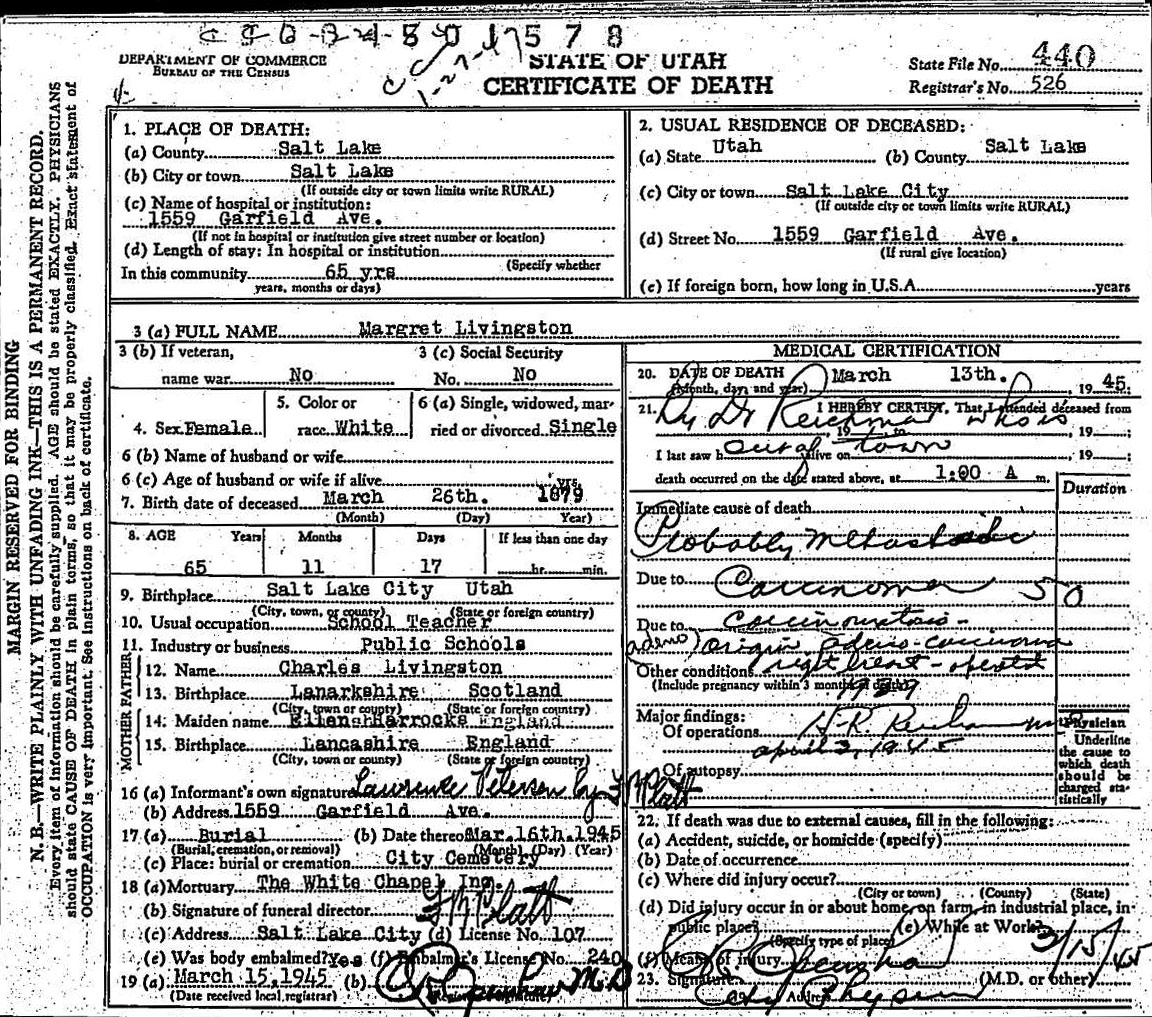 578
DEPARTMENT OF COMMERCE
BUREAU OF THE CENSUS
STATE OF UTAH
CERTIFICATE OF DEATH
State File No. 440
Registrar's No. 526
MARGIN RESERVED FOR BINDING
N. B.—WRITE PLAINLY WITH UNFADING INK—THIS IS A PERMANENT RECORD.
Every item of information should be carefully supplied. AGE should be stated EXACTLY. PHYSICIANS
should state CAUSE OF DEATH in plain terms, so that it may be properly classified. Exact statement of
OCCUPATION is very important. See instructions on back of certificate.
1. PLACE OF DEATH:
(a) County Salt Lake
(b) City or town Salt Lake
(If outside city or town limits write RURAL)
(c) Name of hospital or institution:
1559 Garfield Ave.
(If not in hospital or institution give street number or location)
(d) Length of stay: In hospital or institution
(Specify whether
In this community 65 yrs
years, months or days)
2. USUAL RESIDENCE OF DECEASED:
(a) State Utah (b) County Salt Lake
(c) City or town Salt Lake City
(If outside city or town limits write RURAL)
(d) Street No. 1559 Garfield Ave.
(If rural give location)
(e) If foreign born, how long in U.S.A. years
3 (a) FULL NAME Margret Livingston
3 (b) If veteran, name war No
3 (c) Social Security No. No
4. Sex Female
5. Color or race White
6 (a) Single, widowed, married or divorced Single
6 (b) Name of husband or wife
6 (c) Age of husband or wife if alive yrs.
7. Birth date of deceased March 26th. 1879
(Month) (Day) Year)
8. AGE Years Months Days If less than one day
65 11 17 hr. min.
9. Birthplace Salt Lake City Utah
(City, town, or county) (State or foreign country)
10. Usual occupation School Teacher
11. Industry or business Public Schools
FATHER
12. Name Charles Livingston
13. Birthplace Lanarkshire Scotland
(City, town or county) (State or foreign country)
MOTHER
14. Maiden name Ellen Harrocks England
15. Birthplace Lancashire England
(City, town or county) (State or foreign country)
16 (a) Informant's own signature Lawrence Petersen by Platt
(b) Address 1559 Garfield Ave.
17 (a) Burial (b) Date thereof Mar. 16th. 1945
(Burial, cremation, or removal) (Month) (Day) (Year)
(c) Place: burial or cremation City Cemetery
18 (a) Mortuary The White Chapel Inc.
(b) Signature of funeral director Platt
(c) Address Salt Lake City (d) License No. 107
(e) Was body embalmed? Yes (f) Embalmer's License No. 240
19 (a) March 15, 1945 (b) M.D
(Date received local registrar)
MEDICAL CERTIFICATION
20. DATE OF DEATH March 13th. 1945
(Month, day and year)
21. I HEREBY CERTIFY, That I attended deceased from
By Dr Reichman who is
19 to 19
I last saw h alive on 19
out of town
death occurred on the date stated above, at 1:00 A m.
Duration
Immediate cause of death
Probably Metastatic
Due to Carcinoma 50
Due to Carcinomatosis -
(adeno) origin adeno-carcinoma
Other conditions right breast - operated
(Include pregnancy within 3 months of death)
1939
Major findings:
Of operations
April 3, 1945
Of autopsy
Physician
Underline
the cause to
which death
should be
charged statistically
22. If death was due to external causes, fill in the following:
(a) Accident, suicide, or homicide (specify)
(b) Date of occurrence
(c) Where did injury occur?
(City or town) (County) (State)
(d) Did injury occur in or about home, on farm, in industrial place, in public place?
(Specify type of place)
(e) While at Work?
(f) Means of injury
3/15/45
23. Signature (M.D. or other)
Address City Physician